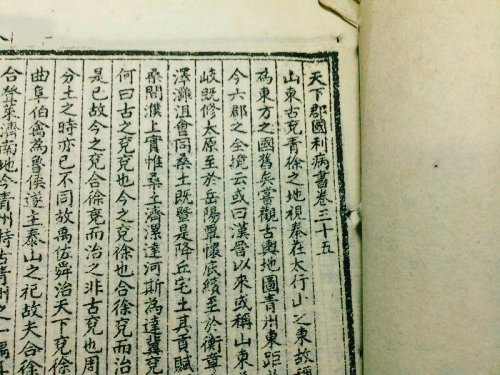 天下郡國利病書卷三十五
山東古兗青徐之地視秦在太行山之東故稱
為東方之國舊矣嘗觀古輿地圖青州東距
今六郡之全境云或曰漢晉以來或稱山東
岐既修太原至於岳陽覃懷底績至於衡章
澤灉沮會同桑土既蠶是降丘宅土其貢賦
桑間濮上實惟桑土濟漯達河斯為達冀兗
何曰古之兗兗也今之兗徐也合徐兗而治
是已故今之兗合徐兗而治之非古兗也周
分土之時亦已不同故禹佐舜治天下兗徐
曲阜伯禽為魯侯遂主泰山之祀故夫合徐
合登萊濟南地今青州特古青州之一隅